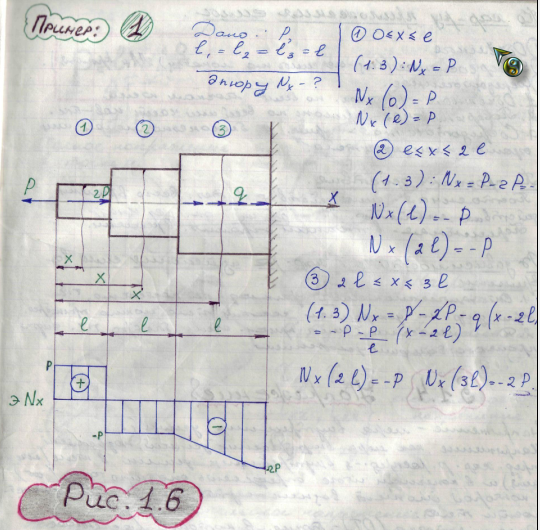 Пример: 1
Дано: P,
l₁ = l₂ = l₃ = l
Эпюру Nx - ?
① 0 ≤ x ≤ l
(1.3): Nx = P
Nx (0) = P
Nx (l) = P
② l ≤ x ≤ 2l
(1.3): Nx = P - 2P = -
Nx (l) = - P
Nx (2l) = - P
③ 2l ≤ x ≤ 3l
(1.3) Nx = P - 2P - q (x - 2l
= - P - P/l (x - 2l)
Nx (2l) = - P Nx (3l) = - 2P
① ② ③
P 2P q x
x
x
x
l l l
P
Э Nx + -
-P
-2P
Рис. 1.6